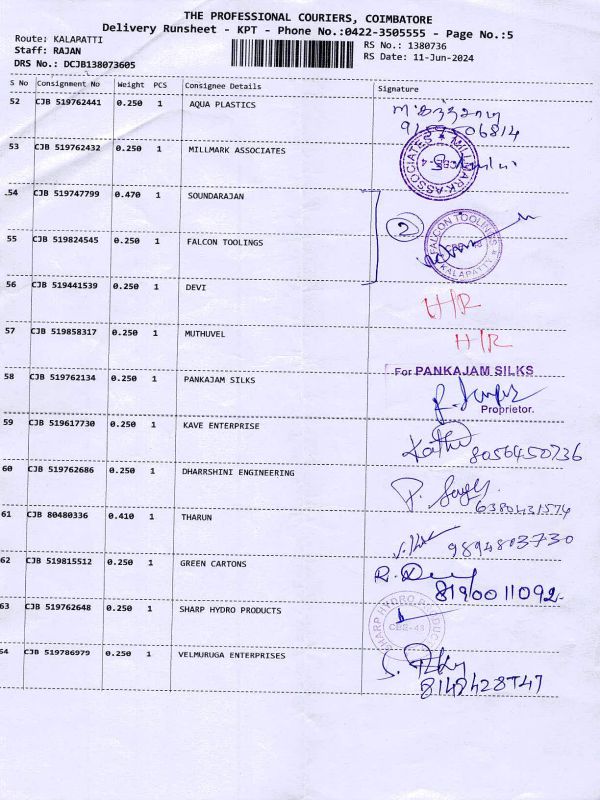 THE PROFESSIONAL COURIERS, COIMBATORE
Delivery Runsheet - KPT - Phone No.:0422-3505555 - Page No.:5
Route: KALAPATTI
Staff: RAJAN
DRS No.: DCJB138073605
RS No.: 1380736
RS Date: 11-Jun-2024
S No Consignment No Weight PCS Consignee Details Signature
52 CJB 519762441 0.250 1 AQUA PLASTICS
53 CJB 519762432 0.250 1 MILLMARK ASSOCIATES
MILLMARK ASSOCIATES
54 CJB 519747799 0.470 1 SOUNDARAJAN
2
55 CJB 519824545 0.250 1 FALCON TOOLINGS
FALCON TOOLINGS
KALAPATTI
56 CJB 519441539 0.250 1 DEVI
H/R
57 CJB 519858317 0.250 1 MUTHUVEL
H/R
For PANKAJAM SILKS
58 CJB 519762134 0.250 1 PANKAJAM SILKS
Proprietor.
59 CJB 519617730 0.250 1 KAVE ENTERPRISE
8056450736
60 CJB 519762686 0.250 1 DHARRSHINI ENGINEERING
6380431574
61 CJB 80480336 0.410 1 THARUN
9894803730
62 CJB 519815512 0.250 1 GREEN CARTONS
8190011092
63 CJB 519762648 0.250 1 SHARP HYDRO PRODUCTS
SHARP HYDRO PRODUCTS
CBE-48
64 CJB 519786979 0.250 1 VELMURUGA ENTERPRISES
8148428747